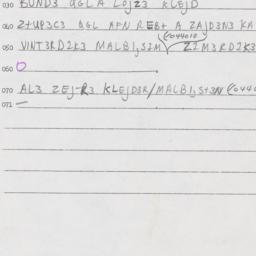 030 BUND3 QGL A LOJZ3 KLEJD
040 Z+UP3C3 QGL AFN REB+ A ZAJD3N3 KA
050 VINT3RD2K3 MALBI,S2M Z2M3RD2K3
060 O
070 AL3 ZEJ-R3 KLEJD3R/MALBI,S+3N
071 —